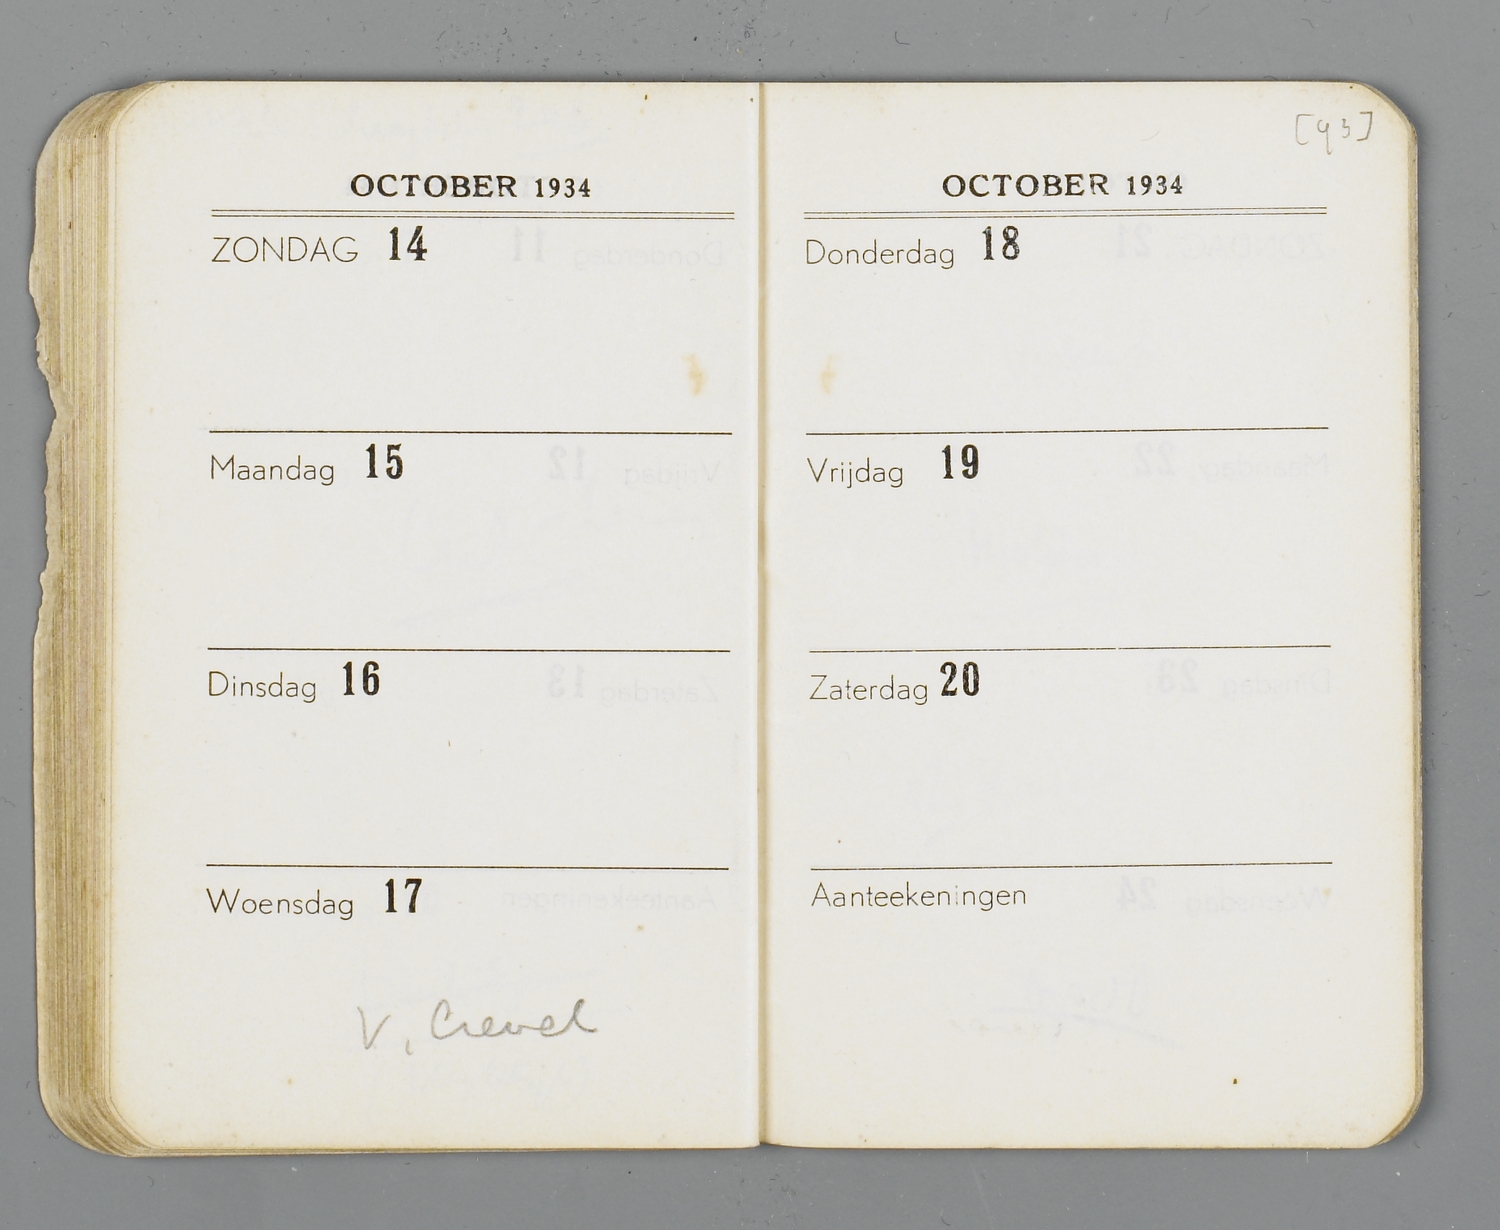 OCTOBER 1934
ZONDAG 14
Maandag 15
Dinsdag 16
Woensdag 17
V. Crevel
[93]
OCTOBER 1934
Donderdag 18
Vrijdag 19
Zaterdag 20
Aanteekeningen